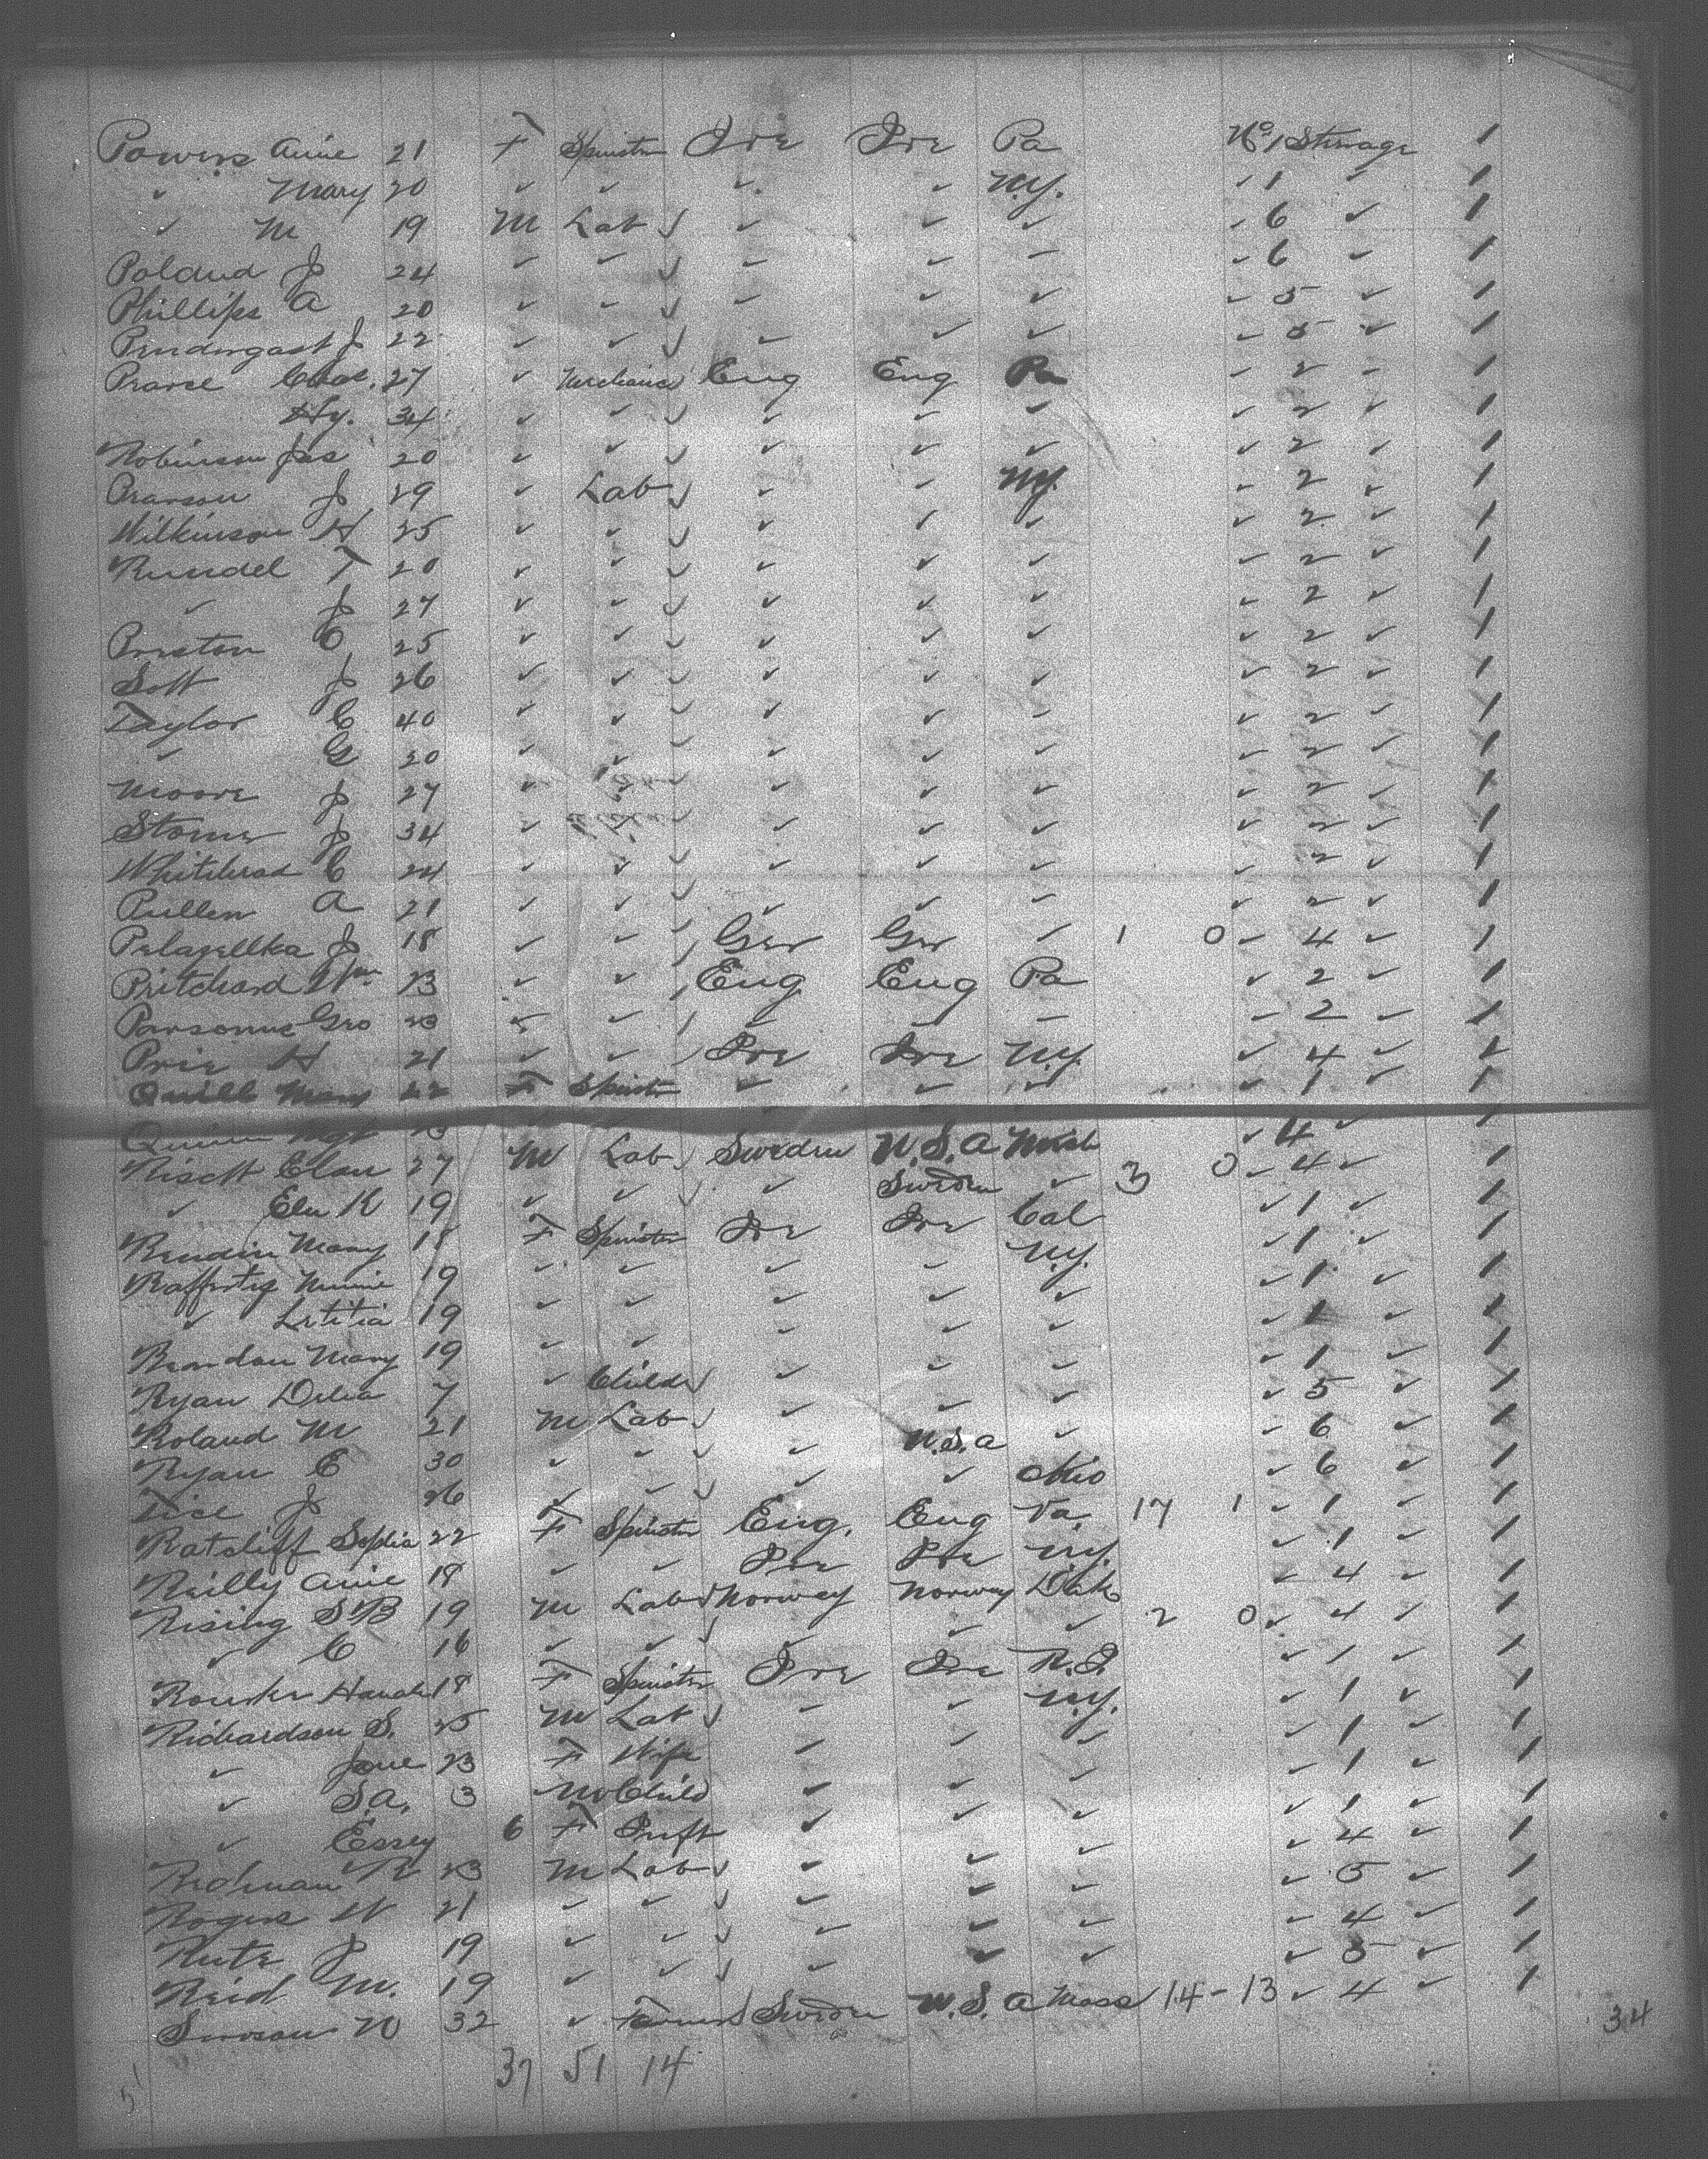 Powers Anie 21 F Spinster Ire Ire Pa No 1 Steerage 1
✓ Mary 20 ✓ ✓ ✓ ✓ N.Y. ✓ 1 ✓ 1
✓ M 19 M Lab ✓ ✓ ✓ ✓ 6 ✓ 1
Poland J 24 ✓ ✓ ✓ ✓ ✓ ✓ 6 ✓ 1
Phillips A 20 ✓ ✓ ✓ ✓ ✓ ✓ 5 ✓ 1
Pendergast J 22 ✓ ✓ ✓ ✓ ✓ ✓ 5 ✓ 1
Pearse Chas. 27 ✓ Mechanic Eng Eng Pa ✓ 2 ✓ 1
Hy. 34 ✓ ✓ ✓ ✓ ✓ ✓ 2 ✓ 1
Robinson Jas 20 ✓ ✓ ✓ ✓ ✓ ✓ 2 ✓ 1
Pearson J 29 ✓ Lab ✓ ✓ N.Y. ✓ 2 ✓ 1
Wilkinson H 25 ✓ ✓ ✓ ✓ ✓ ✓ 2 ✓ 1
Rundel T 20 ✓ ✓ ✓ ✓ ✓ ✓ 2 ✓ 1
✓ J 27 ✓ ✓ ✓ ✓ ✓ ✓ 2 ✓ 1
Preston C 25 ✓ ✓ ✓ ✓ ✓ ✓ 2 ✓ 1
Sott J 26 ✓ ✓ ✓ ✓ ✓ ✓ 2 ✓ 1
Taylor C 40 ✓ ✓ ✓ ✓ ✓ ✓ 2 ✓ 1
✓ G 20 ✓ ✓ ✓ ✓ ✓ ✓ 2 ✓ 1
Moore J 27 ✓ ✓ ✓ ✓ ✓ ✓ 2 ✓ 1
Storer J 34 ✓ ✓ ✓ ✓ ✓ ✓ 2 ✓ 1
Whitehead C 24 ✓ ✓ ✓ ✓ ✓ ✓ 2 ✓ 1
Pullen A 21 ✓ ✓ ✓ ✓ ✓ ✓ 2 ✓ 1
Pelazellka J 18 ✓ ✓ Ger Ger ✓ 1 0 ✓ 4 ✓ 1
Pritchard Wm 23 ✓ ✓ Eng Eng Pa ✓ 2 ✓ 1
Parsonus Geo 23 ✓ ✓ ✓ ✓ ✓ ✓ 2 ✓ 1
Price H 21 ✓ ✓ Ire Ire N.Y. ✓ 4 ✓ 1
Quill Mary 22 F Spinster ✓ ✓ ✓ ✓ 1 ✓ 1
Quinn Mgt 23 ✓ 4 ✓ 1
Risch Clau 27 M Lab Sweden U.S.A Mich 3 0 ✓ 4 ✓ 1
✓ Elu K 19 ✓ ✓ ✓ Sweden ✓ ✓ 1 ✓ 1
Mary 18 F Spinster Ire Ire Cal ✓ 1 ✓ 1
Rafferty Minnie 19 ✓ ✓ ✓ ✓ N.Y. ✓ 1 ✓ 1
✓ Letitia 19 ✓ ✓ ✓ ✓ ✓ ✓ 1 ✓ 1
Mary 19 ✓ ✓ ✓ ✓ ✓ ✓ 1 ✓ 1
Ryan Delia 7 ✓ Child ✓ ✓ ✓ ✓ 5 ✓ 1
Roland M 21 M Lab ✓ ✓ ✓ ✓ 6 ✓ 1
Ryan E 30 ✓ ✓ ✓ U.S.A ✓ ✓ 6 ✓ 1
Tice J 26 ✓ ✓ ✓ ✓ Ohio
Ratcliff Sophia 22 F Spinster Eng. Eng Va. 17 1 ✓ 1 ✓ 1
Reilly Anie 18 ✓ ✓ Ire Ire N.Y. ✓ 1 ✓ 1
Rising S B 19 M Lab Norway Norway Dak ✓ 4 ✓ 1
✓ C 16 ✓ ✓ ✓ ✓ ✓ 2 0 ✓ 4 ✓ 1
Rourke Hanah 18 F Spinster Ire Ire R.I. ✓ 1 ✓ 1
Richardson S. 25 M Lab ✓ ✓ N.Y. ✓ 1 ✓ 1
✓ Jane 23 F Wife ✓ ✓ ✓ ✓ 1 ✓ 1
✓ S.A. 3 M Child ✓ ✓ ✓ ✓ 1 ✓ 1
✓ Essey 6 F Inft ✓ ✓ ✓ ✓ 1 ✓ 1
Redman R 23 M Lab ✓ ✓ ✓ ✓ 4 ✓ 1
Rogers W 21 ✓ ✓ ✓ ✓ ✓ ✓ 5 ✓ 1
Rute J 19 ✓ ✓ ✓ ✓ ✓ ✓ 4 ✓ 1
Reid M. 19 ✓ ✓ ✓ ✓ ✓ ✓ 5 ✓ 1
Swoson N 32 ✓ Farmer Sweden U.S.A Mass 14-13 ✓ 4 ✓ 1
34
37 51 14
51